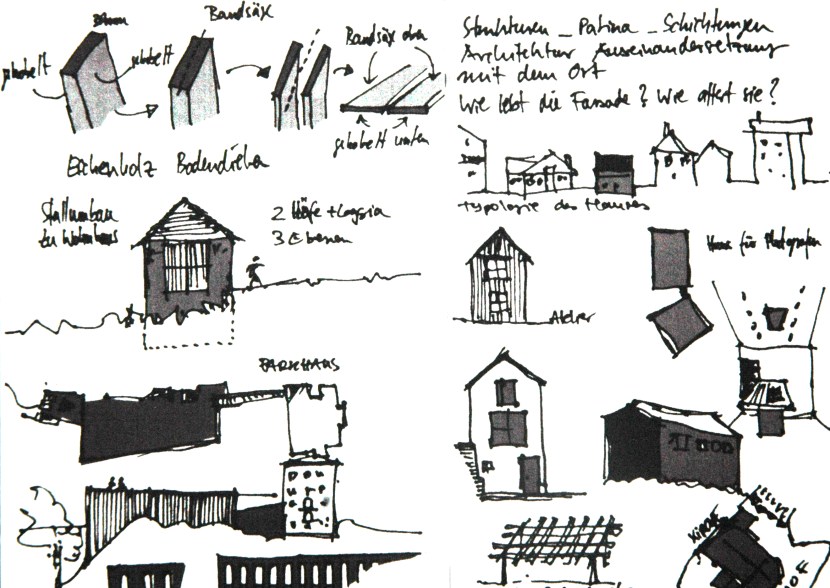 Bandsäge
gehobelt
gehobelt
Bandsäge oben
gehobelt unten
Eichenholz Bodendielen
Stallumbau
zu Wohnhaus
2 Höfe + Loggia
3 Ebenen
PARKHAUS
Strukturen _ Patina _ Schichtungen
Architektur Auseinandersetzung
mit dem Ort
Wie lebt die Fassade? Wie altert sie?
Typologie des Hauses
Haus für Photografen
Atelier
Kirche